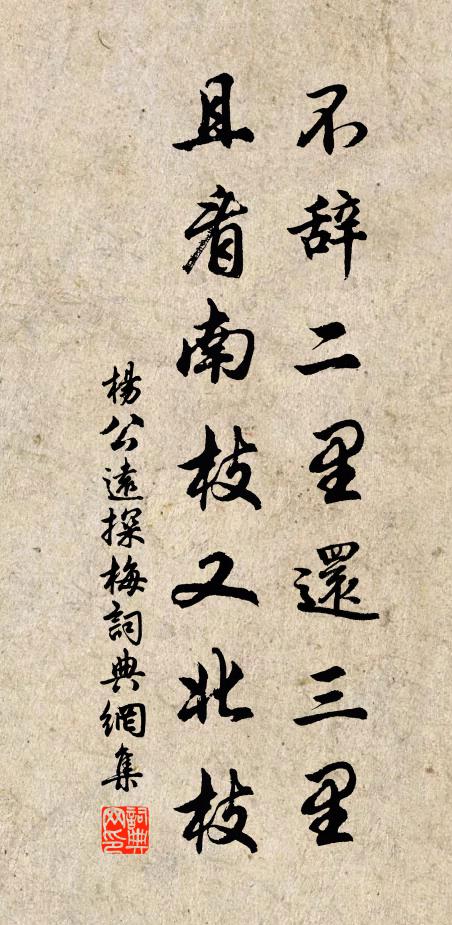 不辞二里還三里
且看南枝又北枝
楊公遠探梅詞典網集
詞典网印